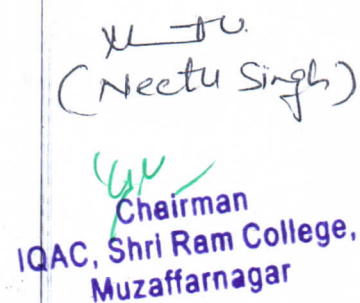 (Neetu Singh)
Chairman
IQAC, Shri Ram College,
Muzaffarnagar